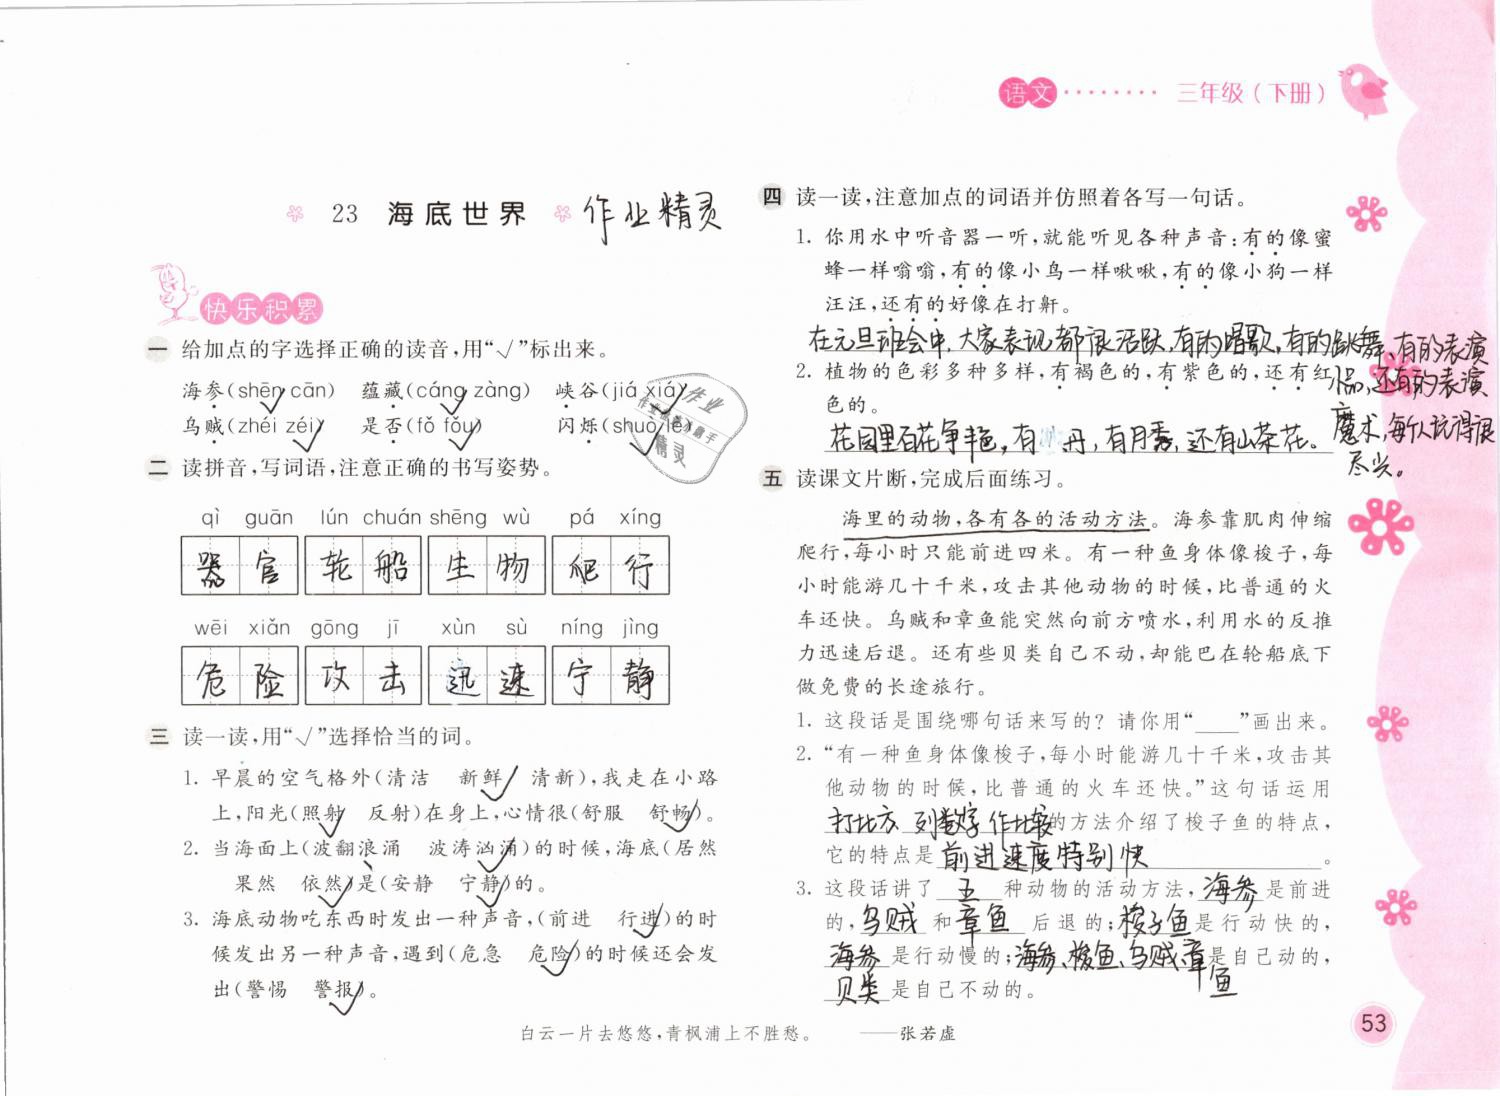 语文 ········ 三年级(下册)
23 海底世界 作业精灵
快乐积累
一 给加点的字选择正确的读音,用“√”标出来。
海参(shēn cān) 蕴藏(cáng zàng) 峡谷(jiá xiá)
乌贼(zhéi zéi) 是否(fǒ fǒu) 闪烁(shuò lè)
作业
精灵
二 读拼音,写词语,注意正确的书写姿势。
qì guān lún chuán shēng wù pá xíng
器官 轮船 生物 爬行
wēi xiǎn gōng jī xùn sù níng jìng
危险 攻击 迅速 宁静
三 读一读,用“√”选择恰当的词。
1. 早晨的空气格外(清洁 新鲜 清新),我走在小路
上,阳光(照射 反射)在身上,心情很(舒服 舒畅)。
2. 当海面上(波翻浪涌 波涛汹涌)的时候,海底(居然
果然 依然)是(安静 宁静)的。
3. 海底动物吃东西时发出一种声音,(前进 行进)的时
候发出另一种声音,遇到(危急 危险)的时候还会发
出(警惕 警报)。
四 读一读,注意加点的词语并仿照着各写一句话。
1. 你用水中听音器一听,就能听见各种声音:有的像蜜
蜂一样嗡嗡,有的像小鸟一样啾啾,有的像小狗一样
汪汪,还有的好像在打鼾。
在元旦班会中,大家表现都很活跃,有的唱歌,有的跳舞、有的表演
小品,还有的表演
魔术,每个人玩得很
尽兴。
2. 植物的色彩多种多样,有褐色的,有紫色的,还有红
色的。
花园里百花争艳,有牡丹,有月季,还有山茶花。
五 读课文片断,完成后面练习。
海里的动物,各有各的活动方法。海参靠肌肉伸缩
爬行,每小时只能前进四米。有一种鱼身体像梭子,每
小时能游几十千米,攻击其他动物的时候,比普通的火
车还快。乌贼和章鱼能突然向前方喷水,利用水的反推
力迅速后退。还有些贝类自己不动,却能巴在轮船底下
做免费的长途旅行。
1. 这段话是围绕哪句话来写的?请你用“____”画出来。
2. “有一种鱼身体像梭子,每小时能游几十千米,攻击其
他动物的时候,比普通的火车还快。”这句话运用
打比方 列数字 作比较的方法介绍了梭子鱼的特点,
它的特点是 前进速度特别快 。
3. 这段话讲了 五 种动物的活动方法,海参是前进
的,乌贼和章鱼后退的;梭子鱼是行动快的,
海参是行动慢的;海参、梭鱼、乌贼、章鱼是自己动的,
贝类是自己不动的。
白云一片去悠悠,青枫浦上不胜愁。 ——张若虚
53